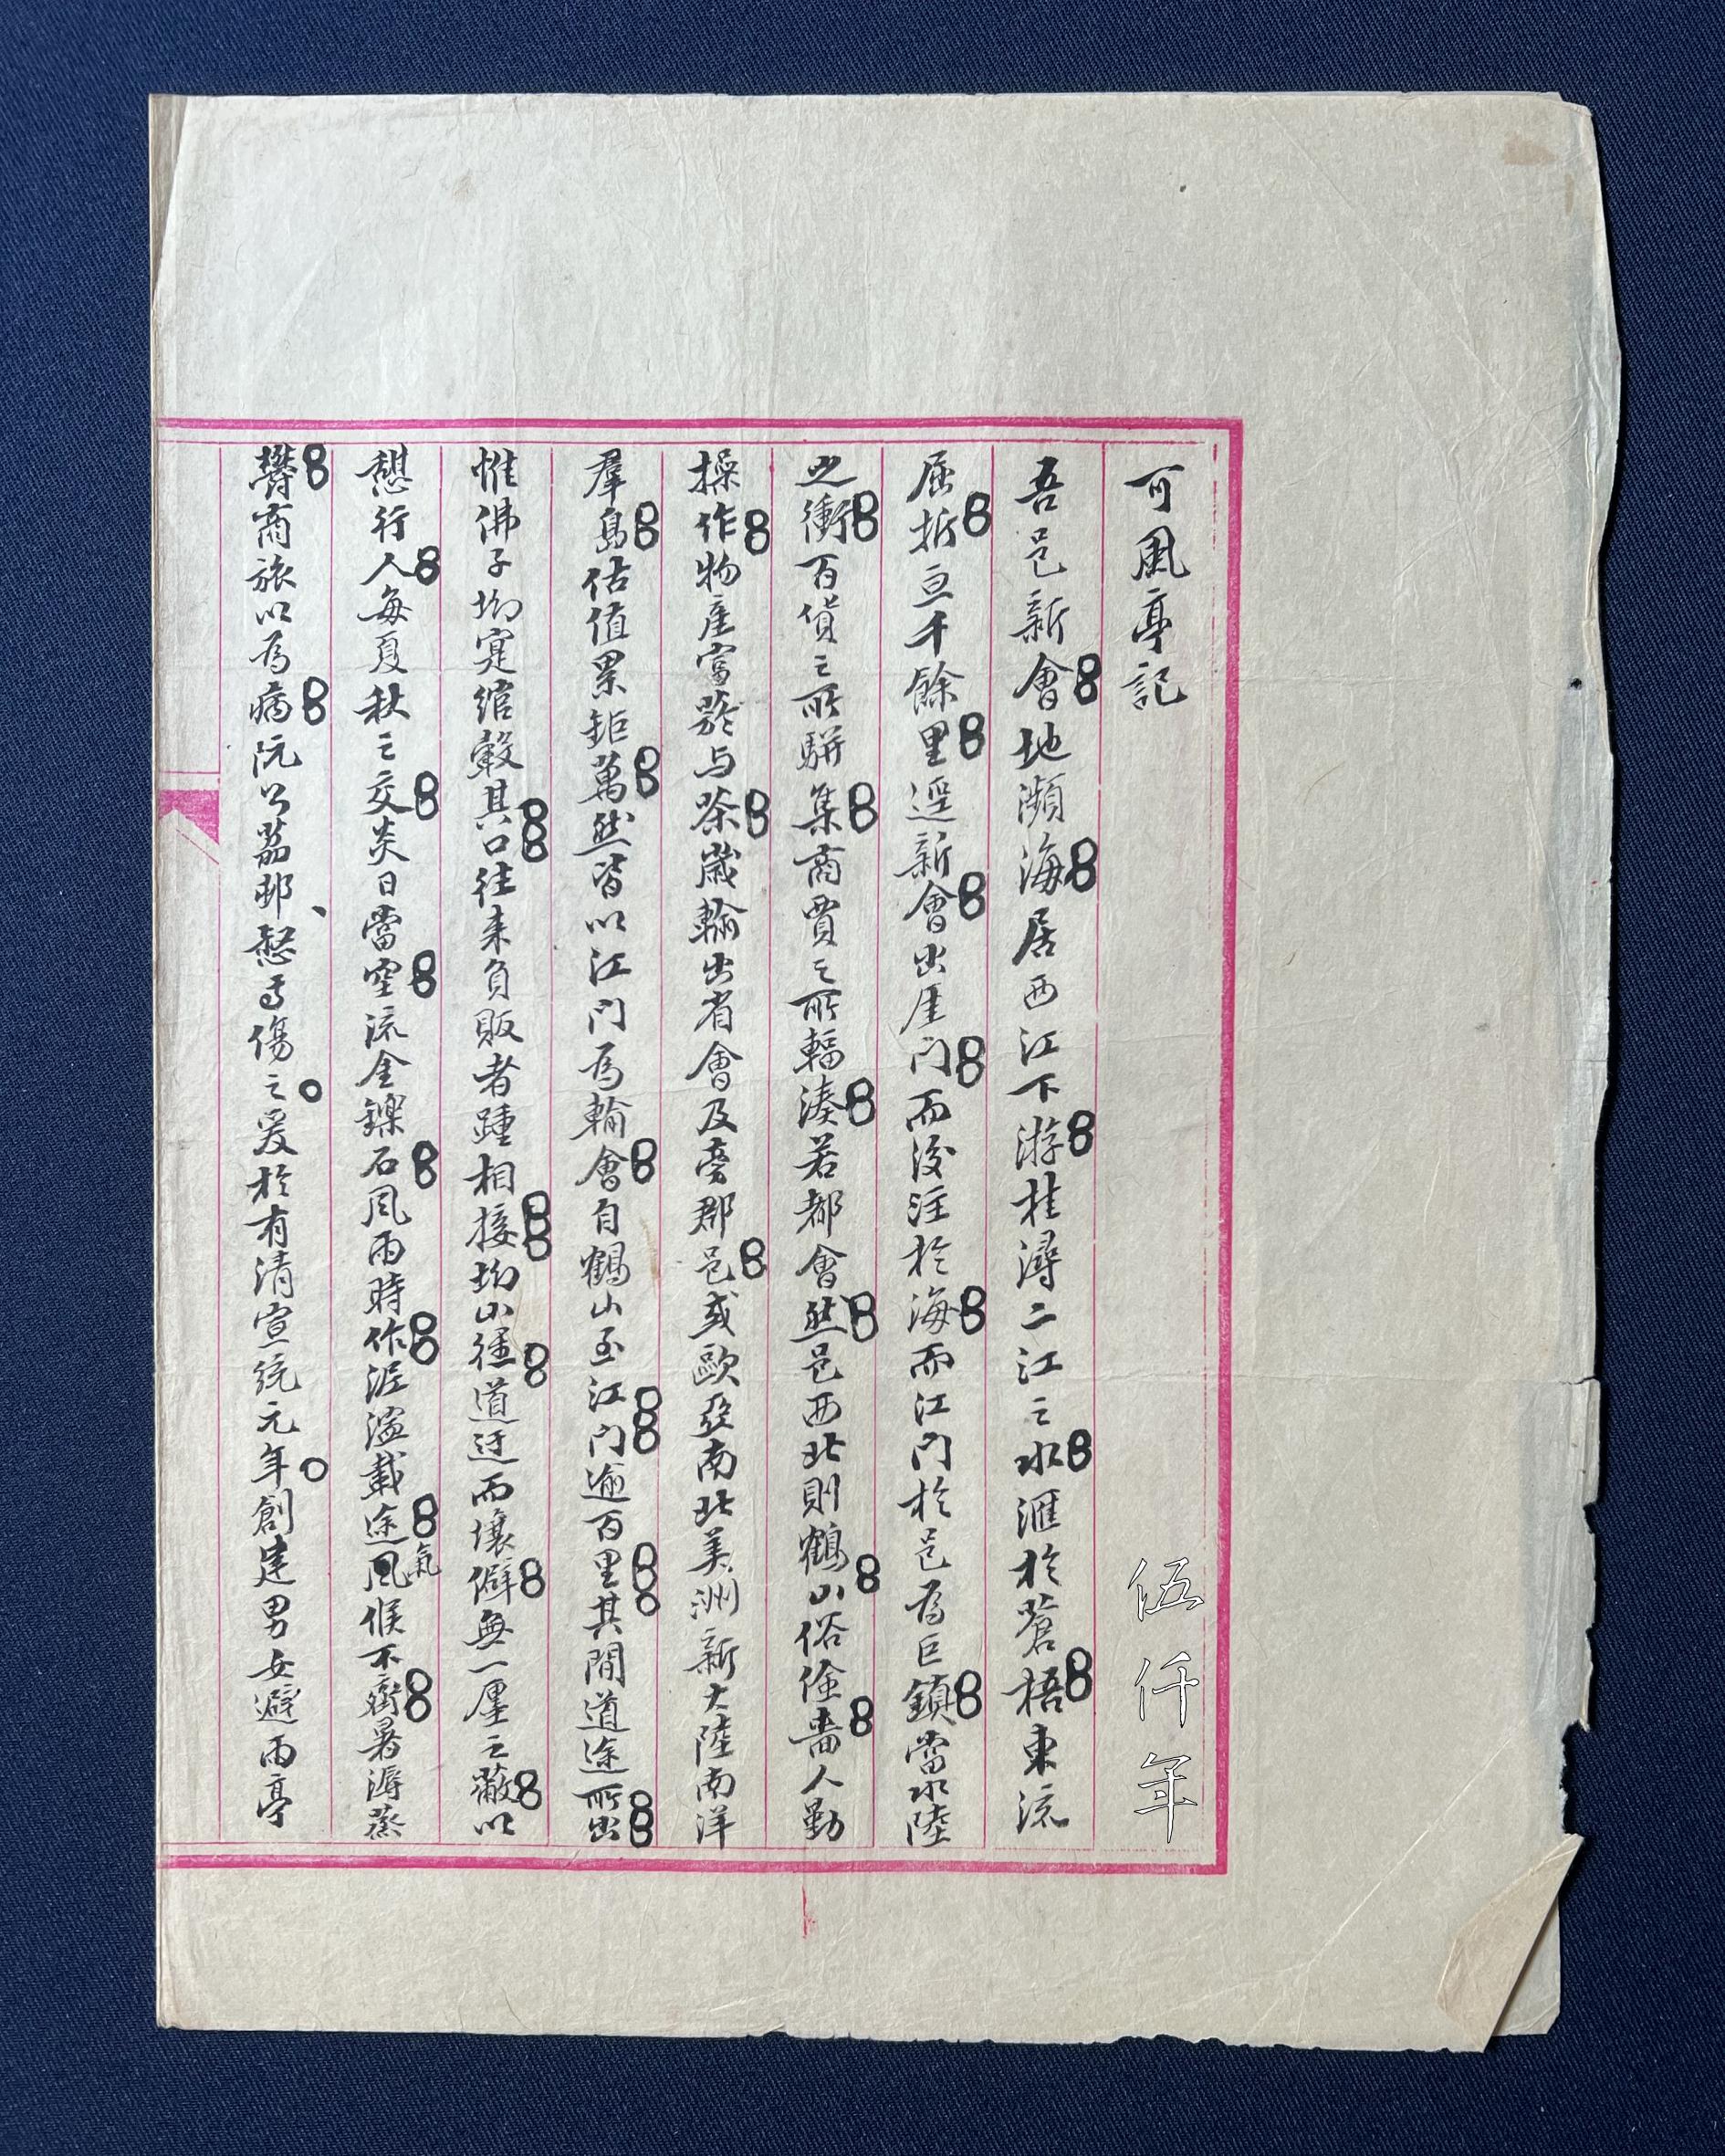 可風亭記
伍仟年
吾邑新會地瀕海居西江下游桂潯二江之水滙於蒼梧東流
屈折亘千餘里逕新會出厓門而後注於海而江門於邑爲巨鎮當水陸
之衝百貨之所駢集商賈之所輻湊若都會然邑西北則鶴山俗儉嗇人勤
操作物產富菸与茶歲輸出省會及旁郡邑或歐亞南北美洲新大陸南洋
羣島估值累鉅萬然皆以江門爲輸會自鶴山至江門逾百里其間道途所出
惟佛子坳寔綰轂其口往来負販者踵相接坳山徑道迂而壤僻無一廛之蔽以
憇行人每夏秋之交炎日當空流金鑠石風雨時作泥濘載途風氣候不齊暑溽蒸
鬱商旅以爲病阮公荔邨慭焉傷之爰於有清宣統元年創建男女避雨亭